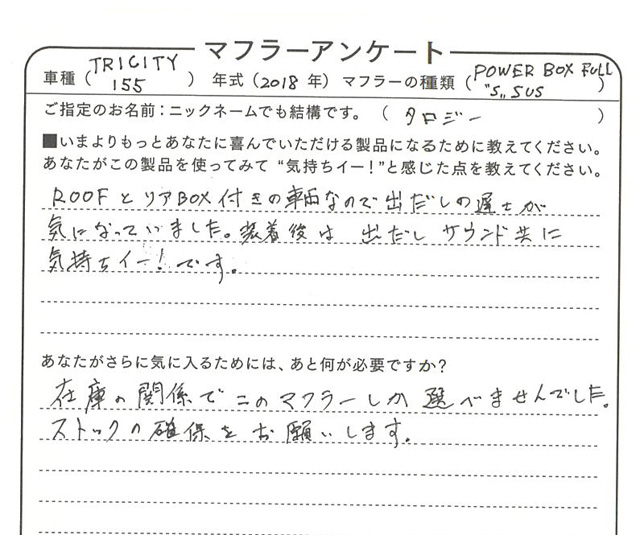 マフラーアンケート
車種（TRICITY 155） 年式（2018 年）マフラーの種類（POWER BOX FULL "S" SUS）
ご指定のお名前：ニックネームでも結構です。（ タロジー ）
■いまよりもっとあなたに喜んでいただける製品になるために教えてください。
あなたがこの製品を使ってみて“気持ちイー！”と感じた点を教えてください。
ROOFとリアBOX付きの車両なので出だしの遅さが
気になっていました。装着後は 出だし サウンド共に
気持ちイー！です。
あなたがさらに気に入るためには、あと何が必要ですか？
在庫の関係でこのマフラーしか 選べませんでした。
ストックの確保をお願いします。